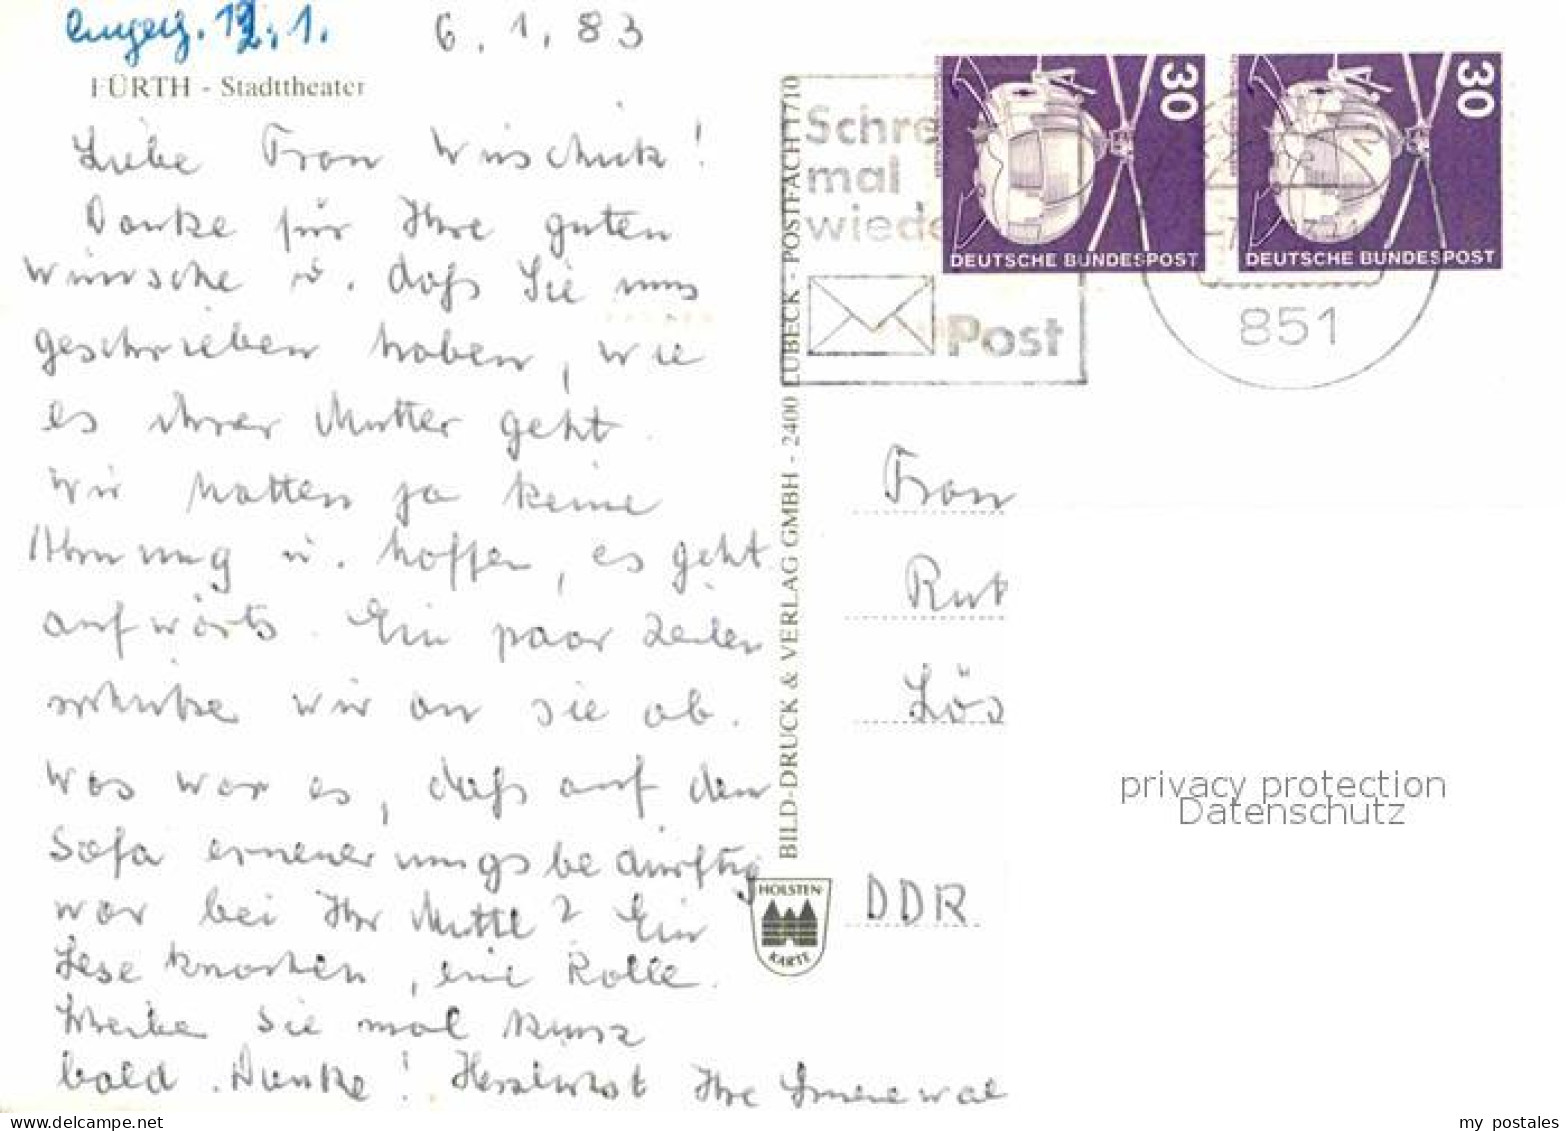 eingeg. 12.1.
6.1.83
FÜRTH - Stadttheater
Liebe Frau Wuschick!
Danke für Ihre guten
Wünsche u. daß Sie uns
geschrieben haben, wie
es ihrer Mutter geht.
Wir hatten ja keine
Ahnung u. hoffen, es geht
aufwärts. Ein paar Zeilen
schicke wir an sie ab.
Was war es, daß auf dem
Sofa erneuerungsbedürftig
war bei Ihr Mutti? Ein
Lese knochen, eine Rolle.
Schreiben Sie mal kurz
bald. Danke! Herzlichst Ihre
BILD-DRUCK & VERLAG GMBH - 2400 LÜBECK - POSTFACH 1710
HOLSTEN-
KARTE
Schre
mal
wiede
Post
30
DEUTSCHE BUNDESPOST
30
DEUTSCHE BUNDESPOST
851
Frau
Rut
Lös
DDR
privacy protection
Datenschutz
delcampe.net
my_postales